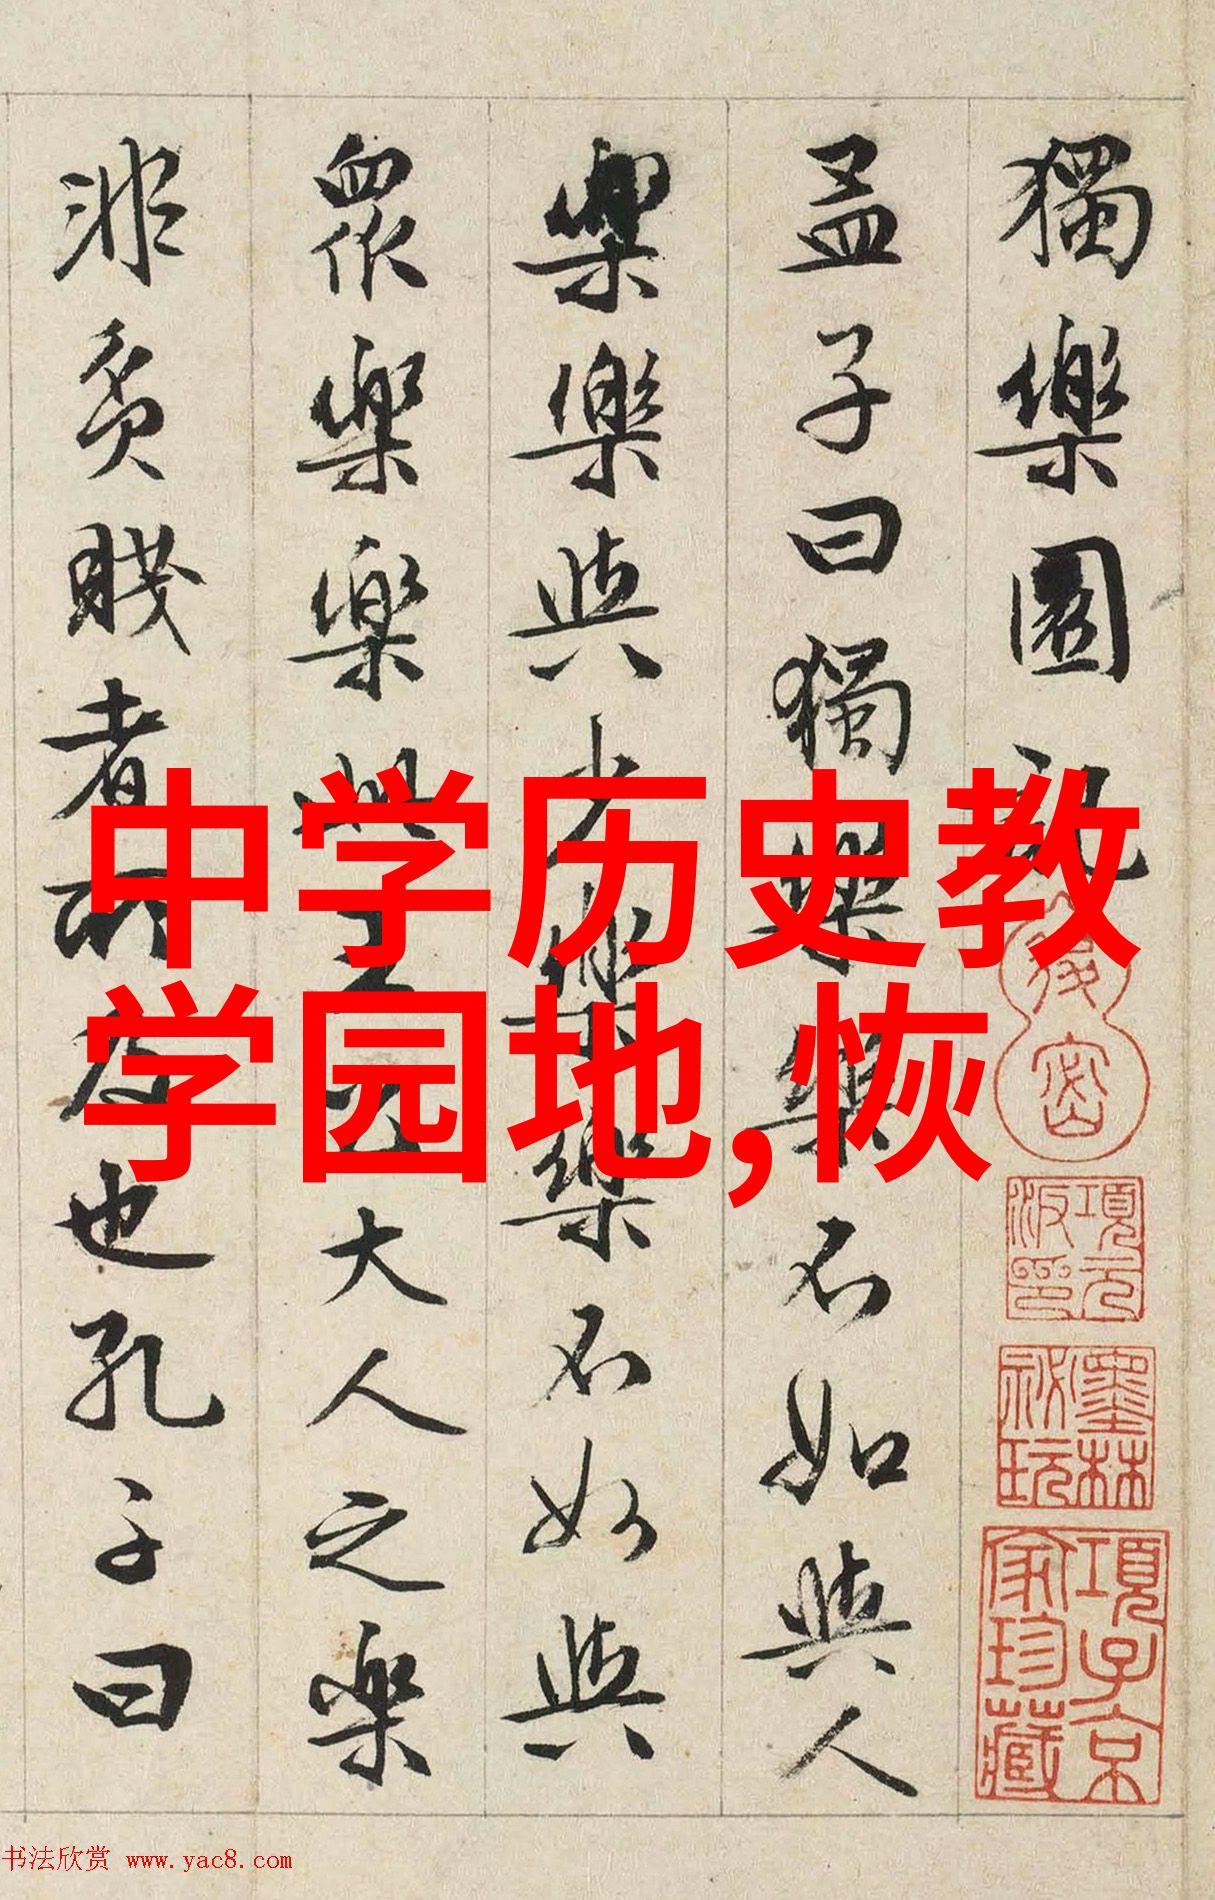 獨樂園記
孟子曰獨樂樂不如與人
樂樂與少樂樂不如與
眾樂樂此王公大人之樂
非貧賤者所及也孔子曰
中学历史教
学园地,恢
項元汴印
墨林祕玩
項子京家珍藏
书法欣赏 www.yac8.com